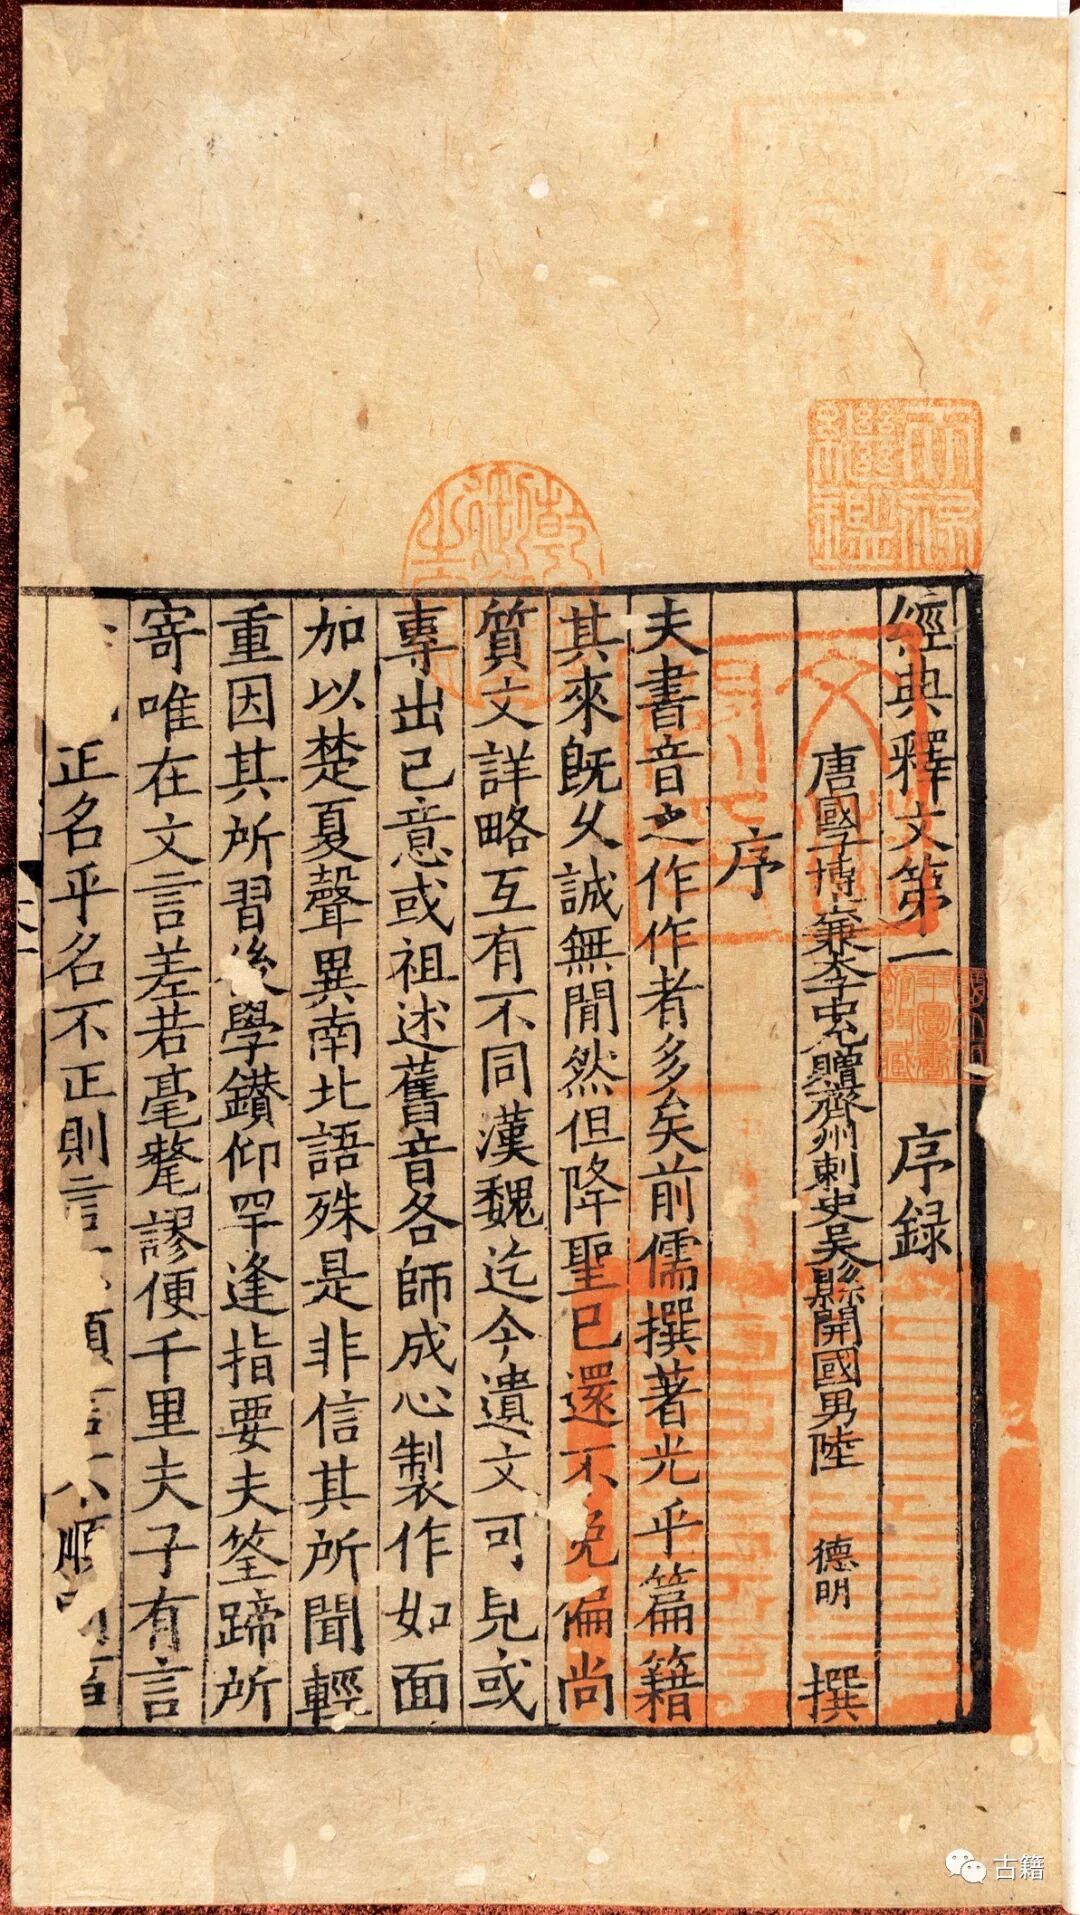 經典釋文第一 序録
唐國子博士兼太子中允贈齊州刺史吳縣開國男陸 德明 撰
序
夫書音之作作者多矣前儒撰著光乎篇籍
其來既久誠無閒然但降聖已還不免偏尚
質文詳略互有不同漢魏迄今遺文可見或
專出己意或祖述舊音各師成心製作如面
加以楚夏聲異南北語殊是非信其所聞輕
重因其所習後學鑚仰罕逢指要夫筌蹄所
寄唯在文言差若毫氂謬便千里夫子有言
正名乎名不正則言順言不順
古籍